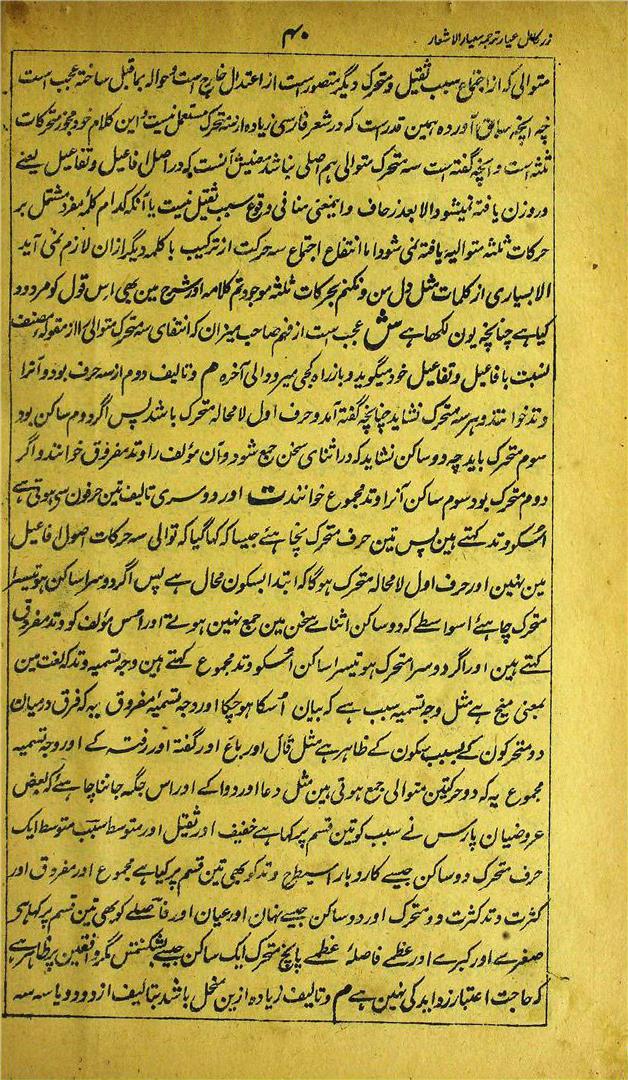 زر کامل عیار ترجمہ معیار الاشعار
۴۰
متوالی کہ از اجتماع سبب ثقیل و متحرک دیگر متصور ست از اعتدال خارج است و حوالہ بما قبل ساختہ عجب است
چہ انچہ سابق آوردہ ہمین قدر ست کہ در شعر فارسی زیادہ از سہ متحرک مستعمل نیست و این کلام خود مجوز متحرکات
ثلثہ است و انچہ گفتہ است سہ متحرک متوالی ہم اصلی نباشد معنیش آنست کہ در اصل افاعیل و تفاعیل یعنے
در وزن یافتہ نمیشود الا بعد زحاف و اینمعنی منافی وقوع سبب ثقیل نیست یا آنکہ کدام کلمۂ مفرد مشتمل بر
حرکات ثلثہ متوالیہ یافتہ نمی شود اما انتفاع اجتماع سہ حرکت از ترکیب با کلمہ دیگر ازان لازم نمی آید
الا بسیاری از کلمات مثل دل من و نکنم بحرکات ثلثہ موجود تم کلامہ اور شرح مین بھی اس قول کو مردود
کیا ہے چنانچہ یون لکھا ہے ش عجب ست از فہم صاحب میزان کہ انتفای سہ متحرک متوالی را از مقولہ مصنف
نسبت با فاعیل و تفاعیل خود میگوید و باز راہ کجی میرود الی آخرہ م و تالیف دوم از سہ حرف بود و آنرا
وتد خوانند و ہر سہ متحرک نشاید چنانچہ گفتہ آمد و حرف اول لا محالہ متحرک باشد پس اگر دوم ساکن بود
سوم متحرک باید چہ دو ساکن نشاید کہ در اثنای سخن جمع شود و آن مؤلف را وتد مفروق خوانند و اگر
دوم متحرک بود سوم ساکن آنرا وتد مجموع خوانند ت اور دوسری تالیف تین حرفون سی ہوتی ہے
اُسکو وتد کہتے ہین پس تین حرف متحرک نچاہئے جیسا کہ کہا گیا کہ توالی سہ حرکات اصول افاعیل
مین نہین اور حرف اول لا محالہ متحرک ہوگا کہ ابتدا بسکون محال ہے پس اگر دوسرا ساکن ہو تیسرا
متحرک چاہئے اسواسطے کہ دو ساکن اثنائے سخن مین جمع نہین ہوتے اور اُس مؤلف کو وتد مفروق
کہتے ہین اور اگر دوسرا متحرک ہو تیسرا ساکن اُسکو وتد مجموع کہتے ہین وجہ تسمیہ وتد کہ لغت مین
بمعنی میخ ہے مثل وجہ تسمیہ سبب ہے کہ بیان اُسکا ہو چکا اور وجہ تسمیۂ مفروق یہ کہ فرق درمیان
دو متحرکون کے بسبب سکون کے ظاہر ہے مثل قال اور باغ اور گفتہ اور رفتہ کے اور وجہ تسمیہ
مجموع یہ کہ دو حرکتین متوالی جمع ہوتی ہین مثل دعا اور دوا کے اور اس جگہ جاننا چاہئے کہ بعض
عروضیان پارس نے سبب کو تین قسم پر کہا ہے خفیف اور ثقیل اور متوسط سبب متوسط ایک
حرف متحرک دو ساکن جیسے کار و بار اسیطرح وتد کو بھی تین قسم پر کیا ہے مجموع اور مفروق اور
کثرت وتد کثرت دو متحرک اور دو ساکن جیسے نہان اور عیان اور فاصلے کو بھی تین قسم پر کہا ہی
صغرے اور کبرے اور عظمے فاصلۂ عظمے پانچ متحرک ایک ساکن جیسے بشکنمتش مگر واقفین پر ظاہر ہے
کہ حاجت اعتبار زواید کی نہین ہے م و تالیف زیادہ ازین منحل باشد بتالیف از دو دو یا سہ سہ